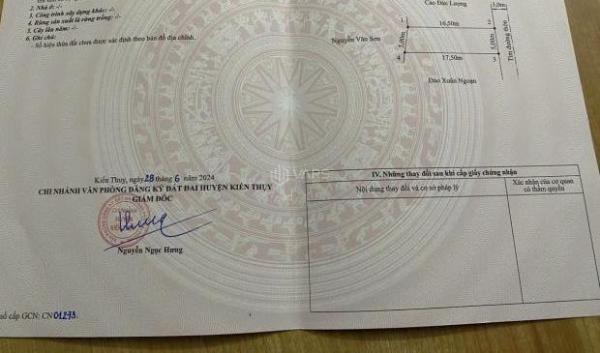 2. Nhà ở: -/-
3. Công trình xây dựng khác: -/-
4. Rừng sản xuất là rừng trồng: -/-
5. Cây lâu năm: -/-
6. Ghi chú:
- Số hiệu thửa đất chưa được xác định theo bản đồ địa chính.
Cao Đức Lượng
1
16,50m
2
3,0m
Nguyễn Văn Sơn
5,00m
5,00m
Tim đường thôn
4
17,50m
3
Đào Xuân Ngoạn
Kiến Thụy, ngày 28 tháng 6 năm 2024
CHI NHÁNH VĂN PHÒNG ĐĂNG KÝ ĐẤT ĐAI HUYỆN KIẾN THỤY
GIÁM ĐỐC
Nguyễn Ngọc Hưng
VARS
IV. Những thay đổi sau khi cấp giấy chứng nhận
Nội dung thay đổi và cơ sở pháp lý
Xác nhận của cơ quan
có thẩm quyền
số cấp GCN: CN 01293.